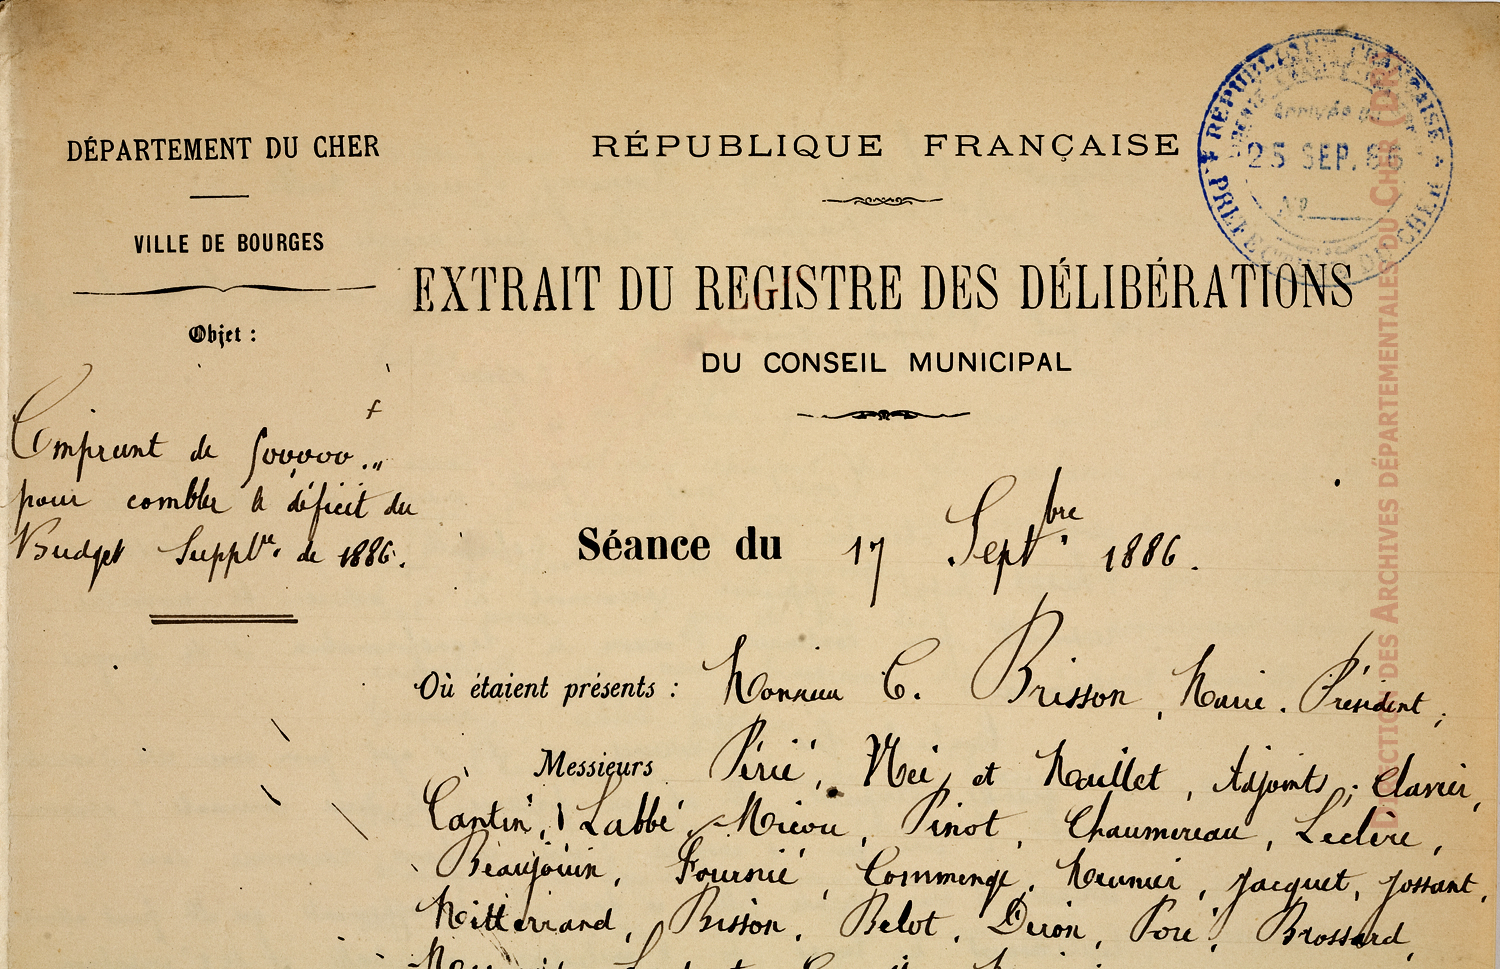 DÉPARTEMENT DU CHER
VILLE DE BOURGES
Objet :
Emprunt de 500,000 f.„
pour combler le déficit du
Budget Suppl.re de 1886.
RÉPUBLIQUE FRANÇAISE
EXTRAIT DU REGISTRE DES DÉLIBÉRATIONS
DU CONSEIL MUNICIPAL
Séance du 17 Septbre 1886.
Où étaient présents : Monsieur C. Brisson, Maire. Président ;
Messieurs Périé, et Maillet, Adjoints ; Clavier,
Cantin, Labbé, Pinot, Chaumereau, Leclère,
Beaujouin, Fournié, Commenge, Meunier, Jacquet, Jossant,
Mitterrand, Bisson, Belot, Poré, Brossard,
RÉPUBLIQUE FRANÇAISE
Arrivée du
25 SEP. 86
No
PRÉFECTURE DU CHER
DIRECTION DES ARCHIVES DÉPARTEMENTALES DU CHER (DR)